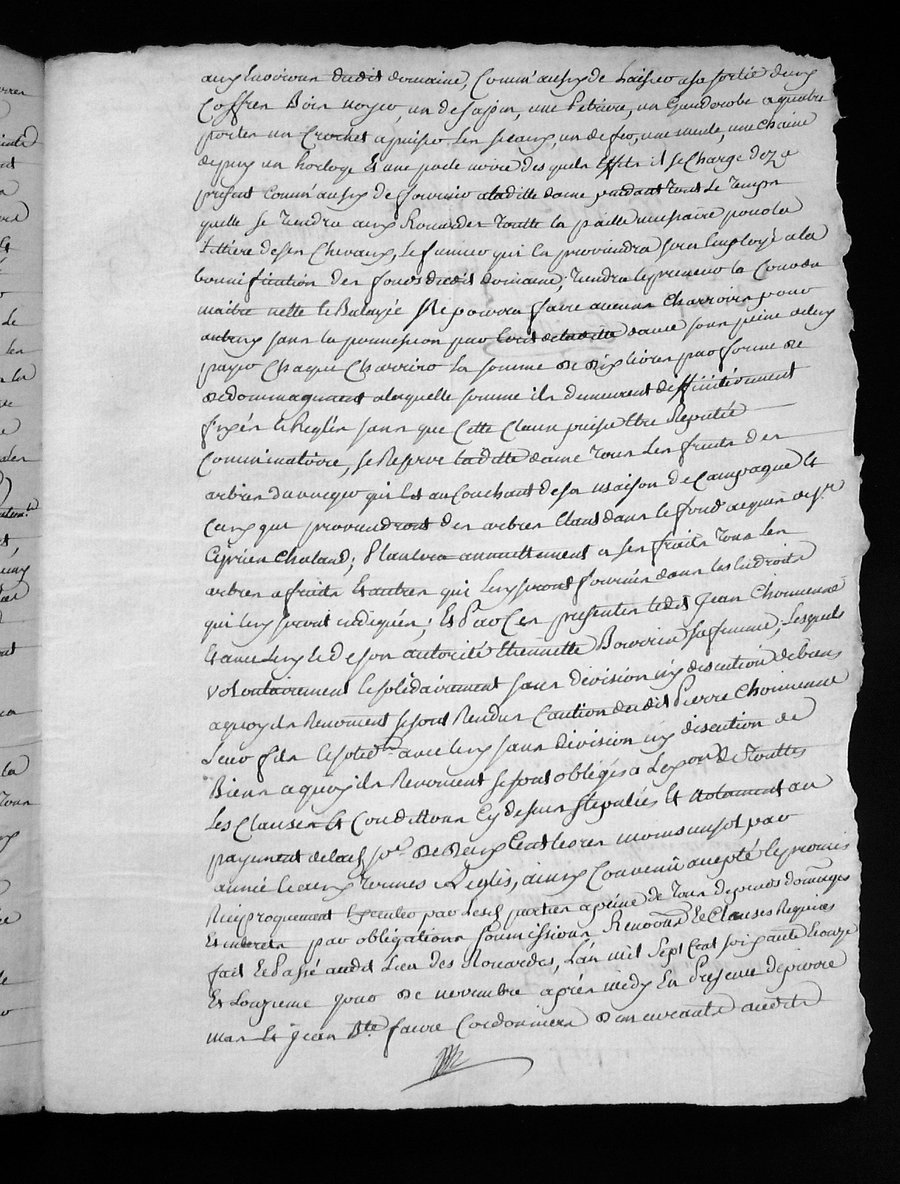 aux Environs dudit domaine, Comm'aussy de Laisser a sa sortie deux
Coffres Bois noyer, un de sapin, une Petrière, un Garderobe a quatre
portes un Crochet a puiser Les seaux, un de fer, une meule, une chaine
depuy un horloge Et une poele noire des quels Effets il se Charge dez a
present comm'aussy de fournir a ladite dame pendant tout Le temps
quelle se tiendra aux Rouardes toutte la paille necessaire pour la
Littiere de ses Chevaux, Le fumier qui En proviendra sera Employé a la
bonnification des fonds dudit Domaine; tiendra le preneur la Cour du
maitre nette Et Balayée Ne pourra faire aucuns Charroirs pour
autruy sans la permission par Ecrit de ladite dame sous peine de luy
payer Chaque Charroir La somme de dix livres par forme de
de dommagement a laquelle somme ils demeurent deffinitivement
fixés Et Reglés sans que Cette Clause puisse Etre Reputée
Comminatoire, se Reserve ladite dame tous Les fruits des
arbres du verger qui Est au Couchant de sa maison de Campagne Et
Ceux que proviendront des arbres Etant dans le fond acquis de Sr
Ciprien Chaland; Plantera annuellement a ses fraits tous Les
arbres a fruits Et autres qui Luy seront fournis dans les Endroits
qui Luy seront indiqués; Et Par Ces presentes Ledit Jean Choumenne
Et avec Luy Et de son autorité Etiennette Bouvier sa femme; Lesquels
volontairement Et solidairement sans division ny discution de biens
a quoy ils Renoncent se sont Rendus Caution dudit Pierre Choumenne
Leur fils Et solidt avec Luy sans Division ny discution de
Biens a quoy ils Renoncent se sont obligés a L'exon de Touttes
Les Clauses Et Conditions Cy dessus stipulées Et notament au
payement de lad. so.e de Deux Cent livres moins un sol par
année Et aux termes Reglés, ainsy Convenu accepté Et promis
Reciproquement Executer par Lesd. parties a peine de tous depends dommages
Et interets par obligations soumissions Renoons Et Clauses Requises
fait Et Passé audit Lieu des Rouardes, L'an mil sept Cent soixante Et onze
Et L'onzieme jour de novembre après midy En Presence de pierre
mas Et Jean Bte faure Cordonniers demeurants audit